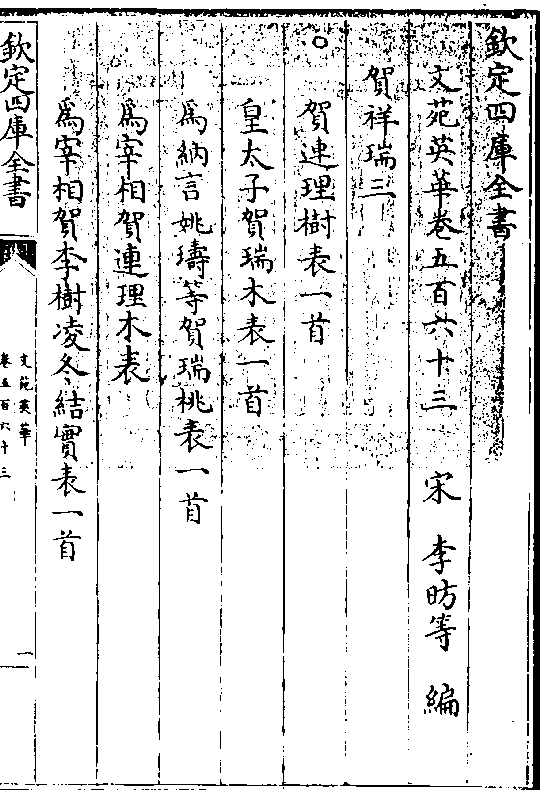 欽定四庫全書
文苑英華卷五百六十三 宋 李昉等 編
賀祥瑞三
○賀連理樹表一首
皇太子賀瑞木表一首
為納言姚璹等賀瑞桃表一首
為宰相賀連理木表
為宰相賀李樹凌冬結實表一首
欽定四庫全書
文苑英華
卷五百六十三
一